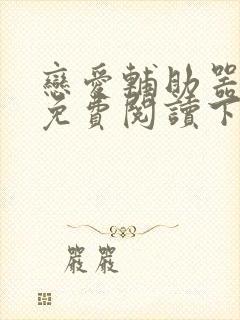 戀愛輔助器
免費閱讀下
嚴嚴